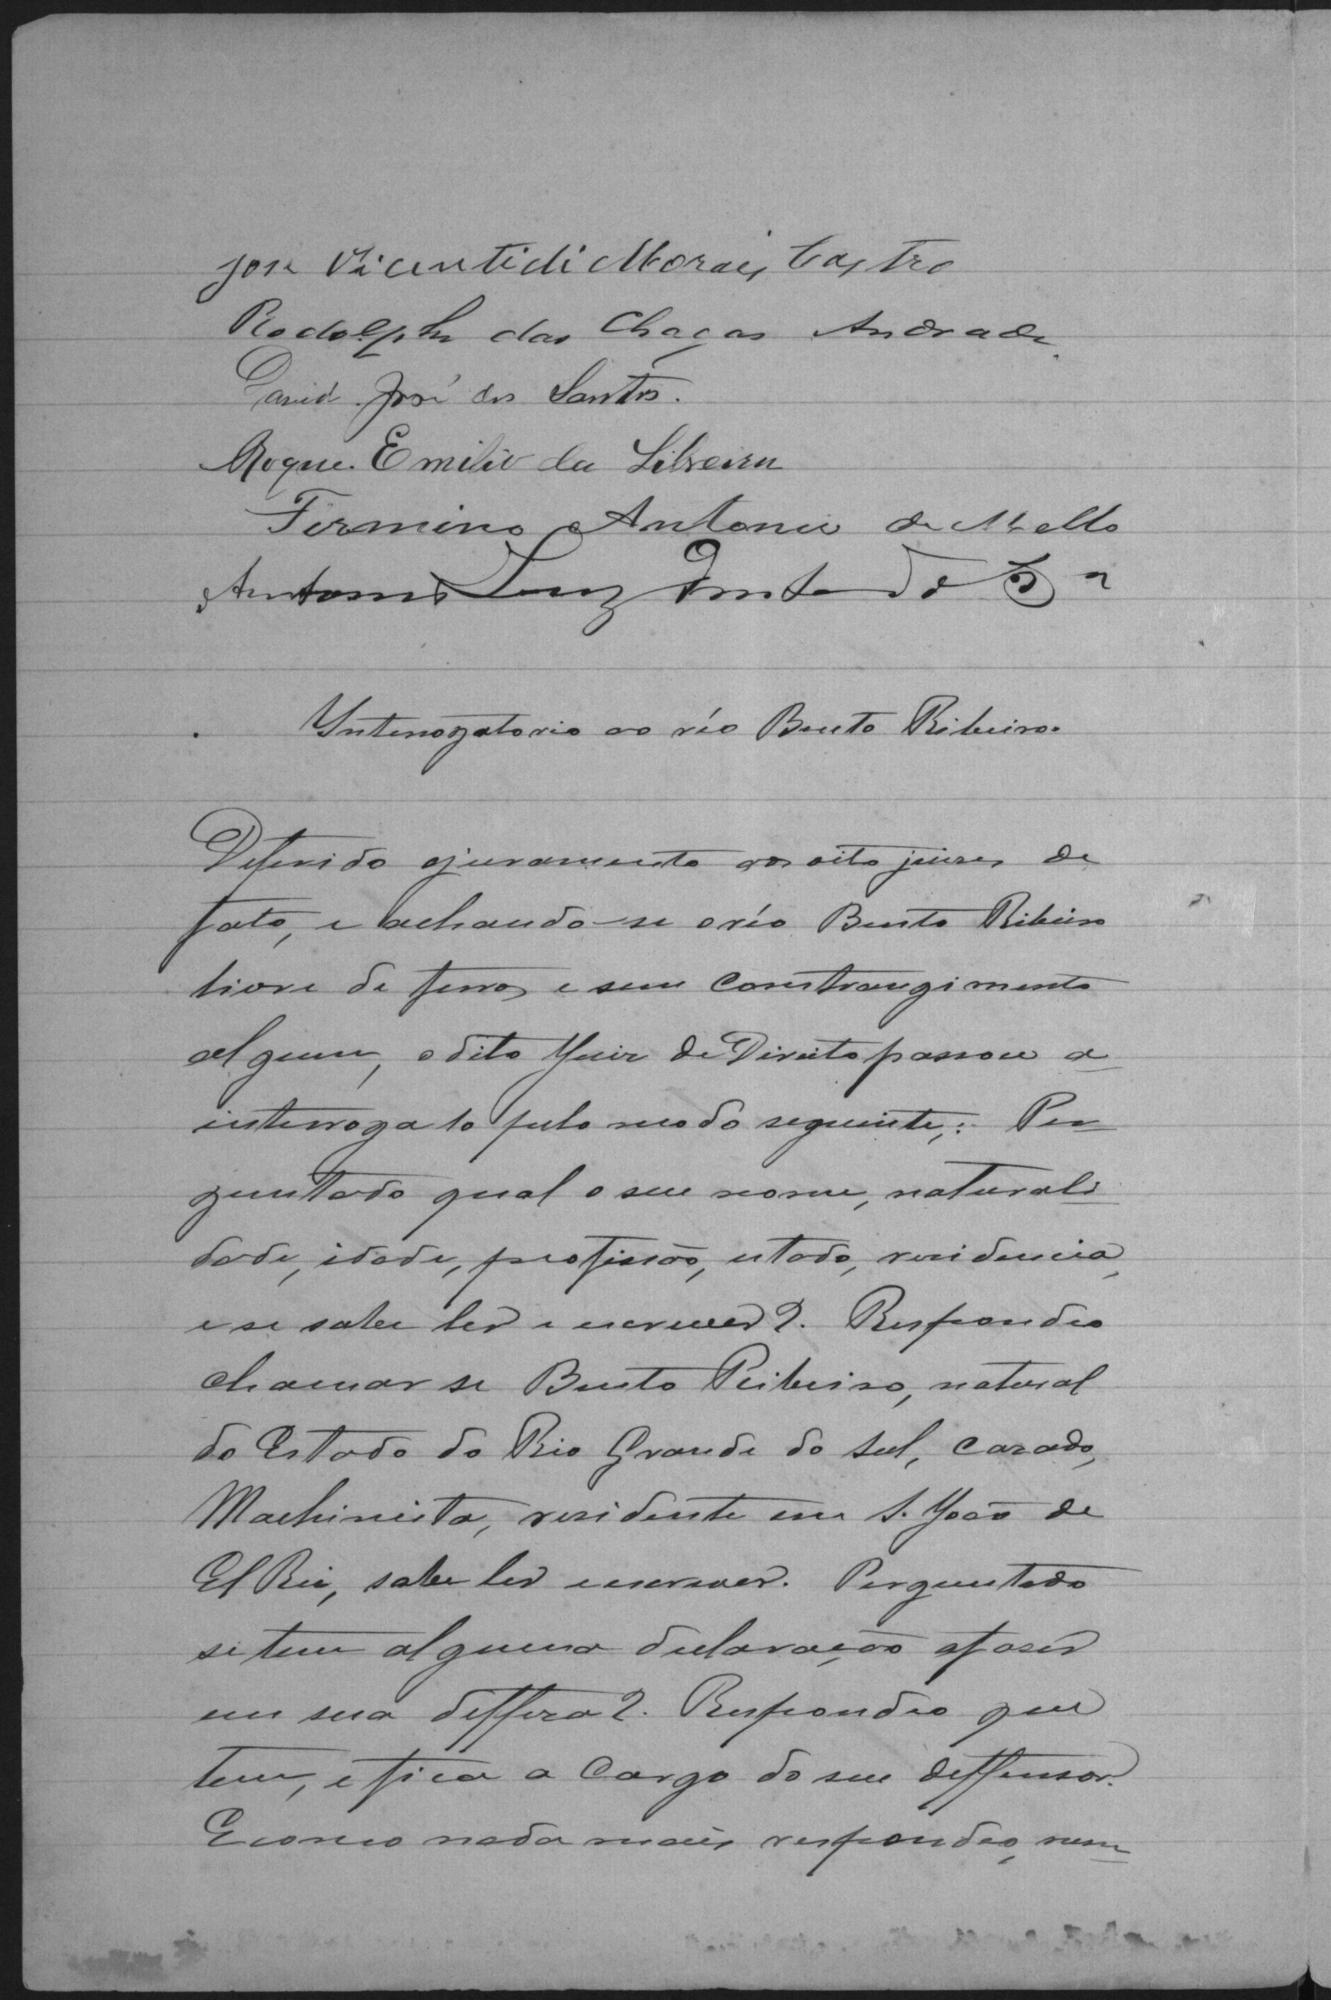 José Vicente di Moraes Castro
Rodolpho das Chagas Andrade
David José dos Santos.
Roque Emilio da Silveira
Firmino Antonio de Mello
Antonio Luiz
Interrogatorio ao réo Bento Ribeiro.
Deferido o juramento aos oito juises de
fato, e achando-se o réo Bento Ribeiro
livre de ferros e sem constrangimento
algum, o dito Juiz de Direito passou a
interrogalo pelo modo seguinte,: Per-
guntado qual o seu nome, naturali-
dade, idade, profissão, estado, residencia,
e se sabe ler e escrever?. Respondeo
chamar se Bento Ribeiro, natural
do Estado do Rio Grande do Sul, cazado,
Machinista, residente em S. João de
El Rei, sabe ler e escrever. Perguntado
se tem alguma declaração afaser
em sua deffeza?. Respondeo que
tem, e fica a cargo do seu deffensor.
E como nada mais respondeo, nem